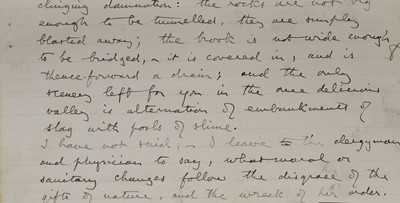 clinging damnation: the rocks are not big
enough to be tunnelled, they are simply
blasted away; the brook is not wide enough
to be bridged, it is covered in, and is
thenceforward a drain; and the only
scenery left for you in the once delicious
valley is alternation of embankments of
slag with pools of slime.
I have not said, I leave to the clergyman
and physician to say, what moral or
sanitary changes follow the disgrace of the
gifts of nature, and the wreck of her order.